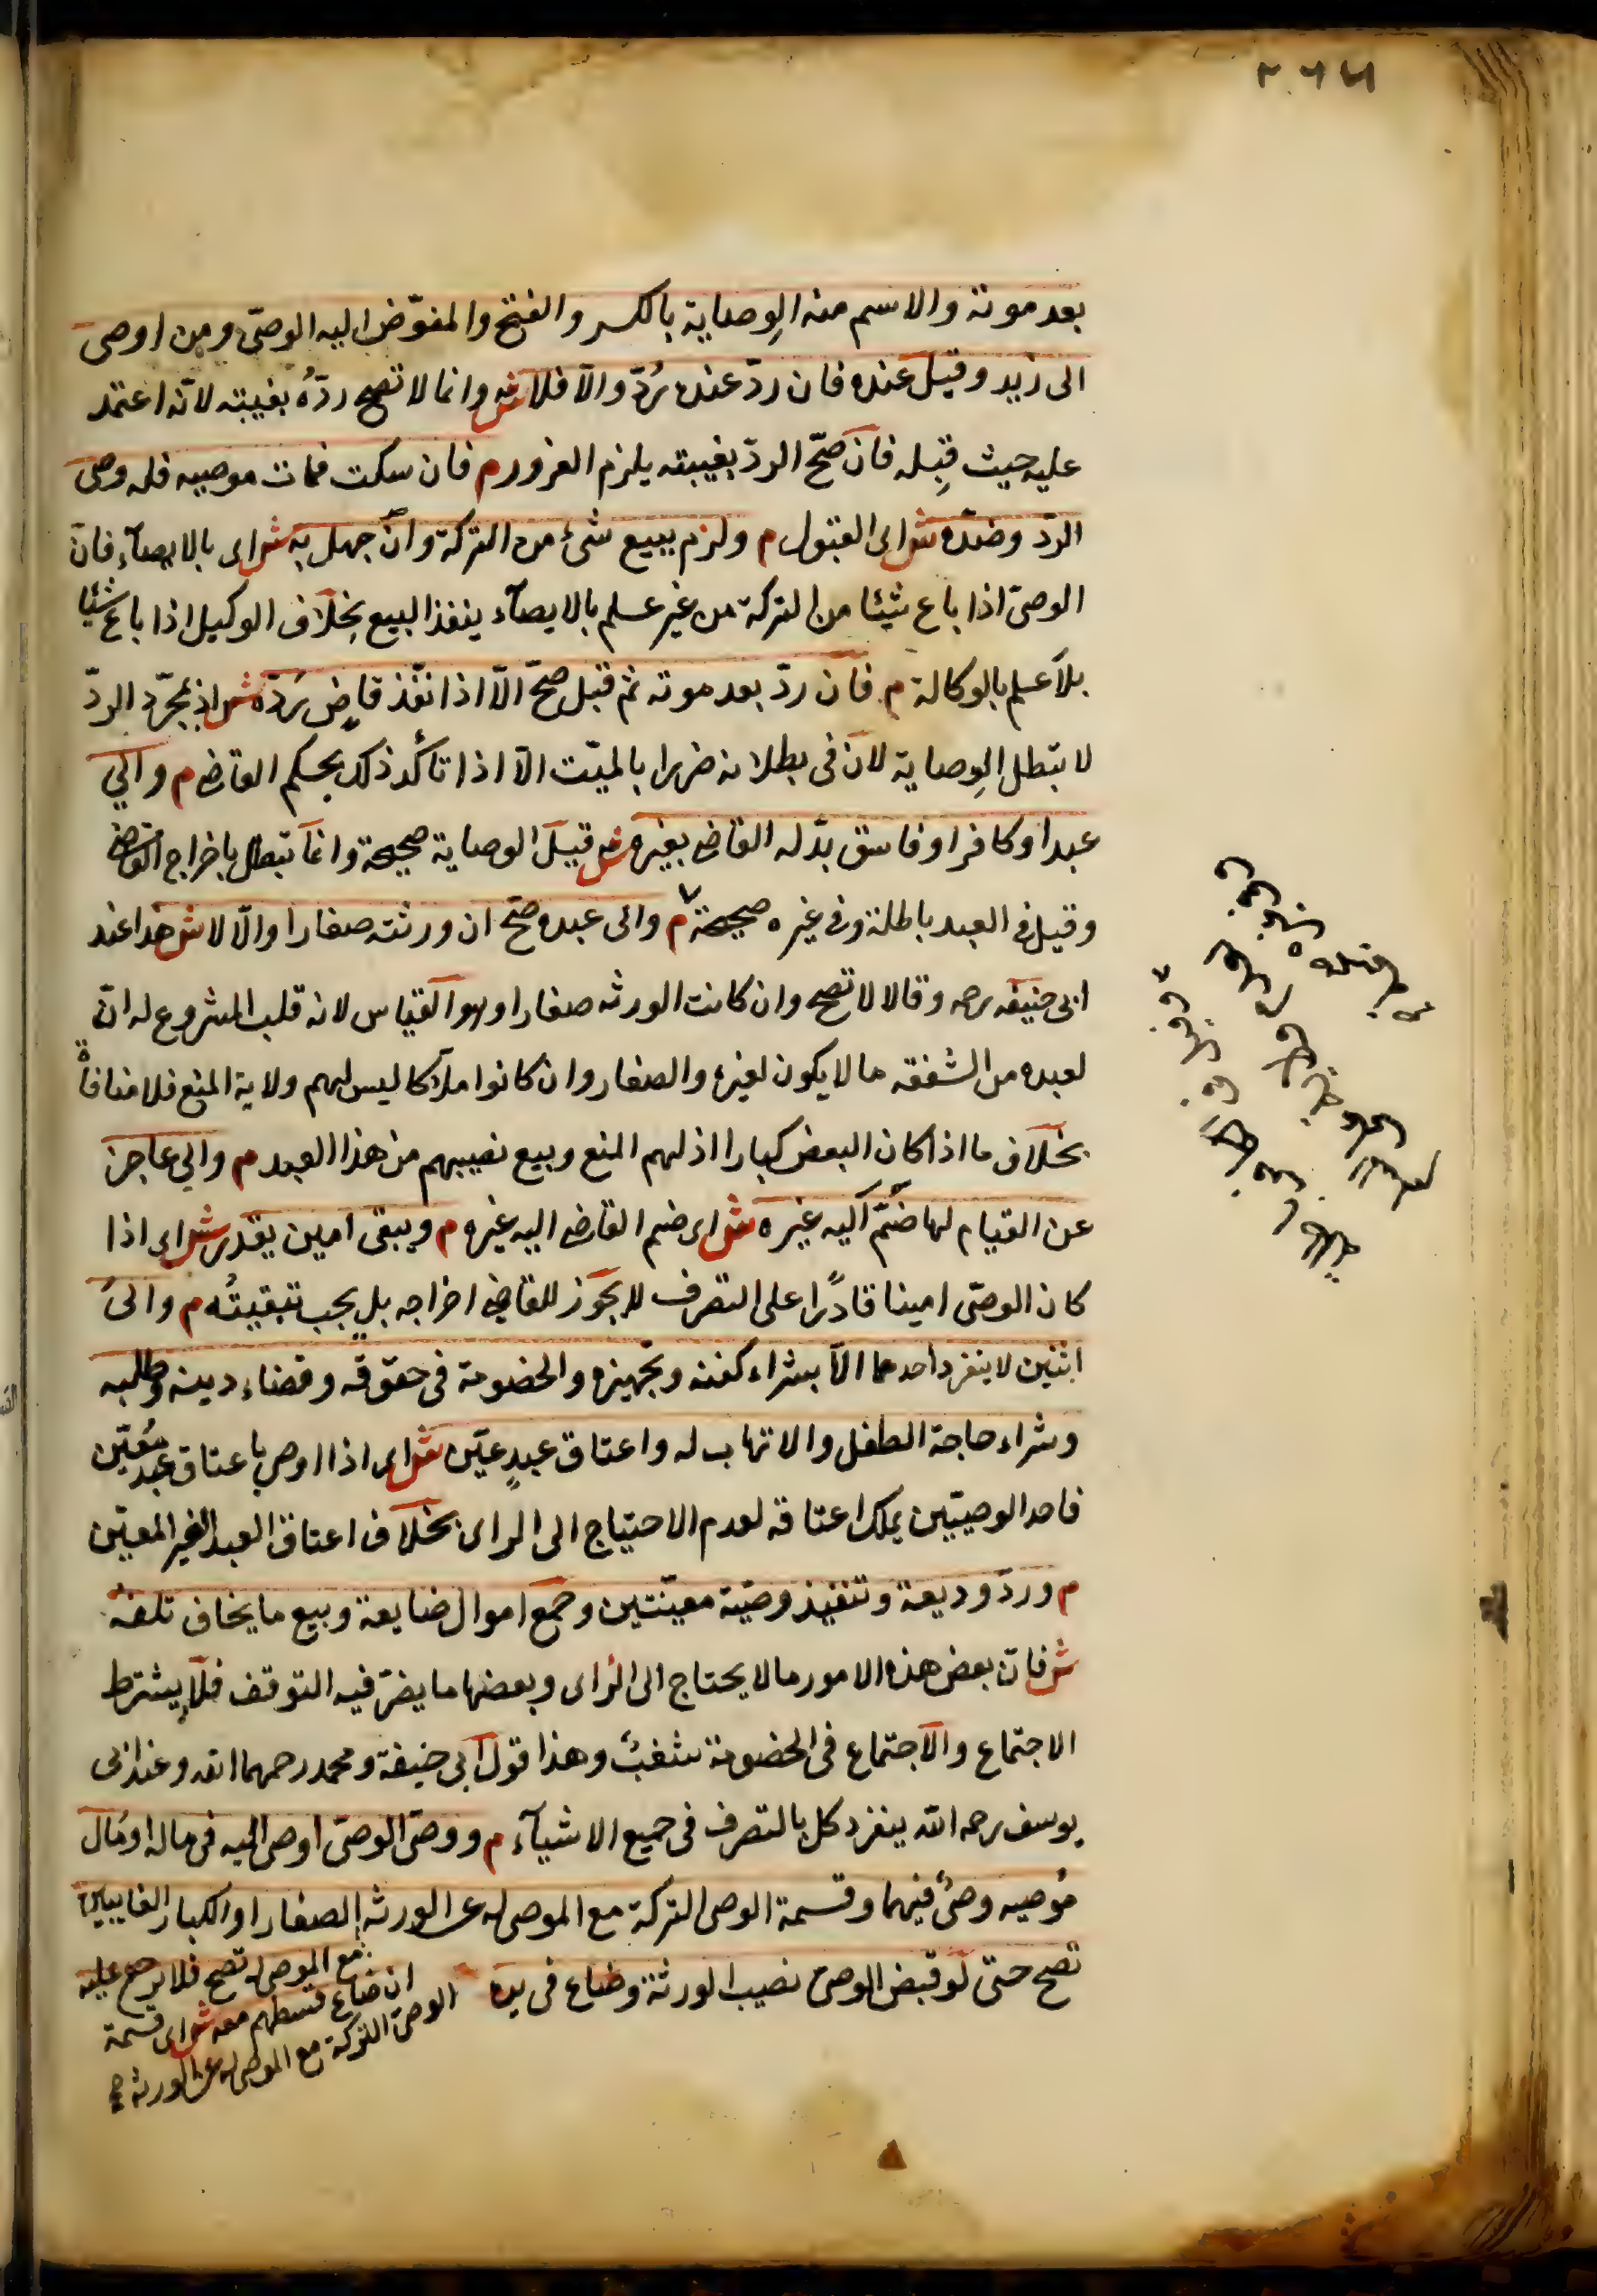 بعد موته والاسم منه الوِصاية بالكسر والفتح والمفوّض اليه الوصىّ ومن اوصى
الى زيد وقبل عنده فان ردّ عنده يُردّ والّا فلا ش وانما لا تصح ردّهُ بغيبته لانّه اعتمد
عليه حيث قبِله فان صحّ الردّ بغيبته يلزم الغرور م فان سكت فمات موصيه فله وصى
الردّ وضدّه ش اى القبول م ولزم ببيع شئ من التركة وان جهل به ش اى بالايصآء فان
الوصىّ اذا باع شيئا من التركة من غير علم بالايصآء ينفذ البيع بخلاف الوكيل اذا باع شيئا
بلا علم بالوكالة م فان ردّ بعد موته ثم قبل صحّ الّا اذا نفّذ قاضٍ ردّه ش اذ بمجرّد الردّ
لا تبطل الوِصاية لان فى بطلانه ضررا بالميّت الّا اذا تأكّد ذلك بحكم القاضى م والي
عبد او كافر او فاسق بدّله القاضى بغيره ش قيل الوصاية صحيحة وانما تبطل باخراج القاضى
وقيل فى العبد باطلة وفى غيره صحيحة م والى عبده صحّ ان ورثته صغارا والّا لا ش هذا عند
ابى حنيفه رحه وقالا لا تصح وان كانت الورثه صغارا وهو القياس لانه قلب المشروع له انّ
لعبده من الشفقه ما لا يكون لغيره والصغار وان كانوا ملاكا ليس لهم ولاية المنع فلا منافاةْ
بخلاف ما اذا كان البعض كبارا اذ لهم المنع وبيع نصيبهم من هذا العبد م والي عاجز
عن القيام لها ضُمّ اليه غيره ش اى ضم القاضى اليه غيره م ويبقى امين يقدر ش اى اذا
كان الوصّى امينا قادرًا على التصرف لا يجوز للقاضى اخراجه بل يجب تبقيتُه م والىُ
اثنين لا ينفرد احدهما الّا بشراء كفنه وتجهيزه والخصومة فى حقوقه وقضاء دينه وطلبه
وشراء حاجة الطفل والاتهاب له واعتاق عبدٍ عيّن ش اى اذا اوصى باعتاق عبد مُعيّن
فاحد الوصيّين يملك اعتاقه لعدم الاحتياج الى الراى بخلاف اعتاق العبد الغير المعيّن
م وردّ وديعة وتنفيذ وصيّة معيّنتين وجمع اموال ضايعة وبيع ما يخاف تلفهُ
ش فان بعض هذه الامور مالا يحتاج الى الراى وبعضها ما يضرّ فيه التوقف فلا يشترط
الاجتماع والاجتماع فى الخصومة شغبٌ وهذا قول ابى حنيفة ومحمد رحمهما الله وعند ابى
يوسف رحمه الله ينفرد كل بالتصرف فى جميع الاشيآء م ووصىّ الوصىّ اوصى اليه فى ماله او مال
مُوصيه وصىٌ فيهما وقسمة الوصى التركة مع الموصى له عن الورثه الصغار او الكبار الغايبين
تصح حتى لو قبض الوصىّ نصيب الورثة وضاع فى يده
مع الموصى له تصح فلا يرجع عليه
ان ضاع قسطهم معه ش اى قسمة
الوصىّ التركة مع الموصى له عن الورثه